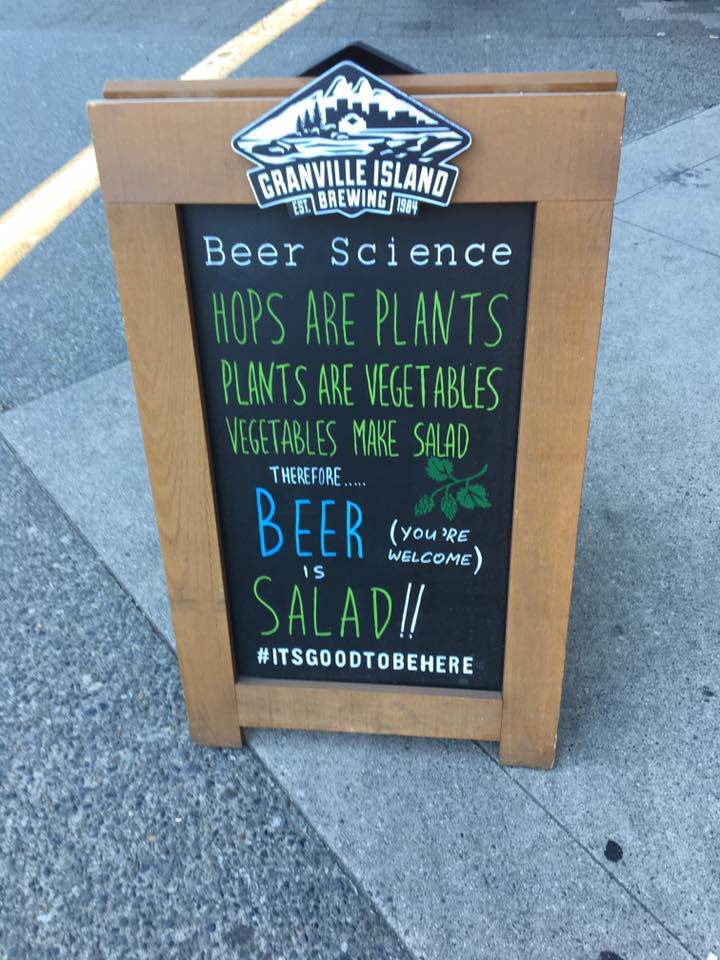 GRANVILLE ISLAND
EST. BREWING 1984
Beer Science
HOPS ARE PLANTS
PLANTS ARE VEGETABLES
VEGETABLES MAKE SALAD
THEREFORE.....
BEER (YOU'RE
WELCOME)
IS
SALAD!!
#ITSGOODTOBEHERE